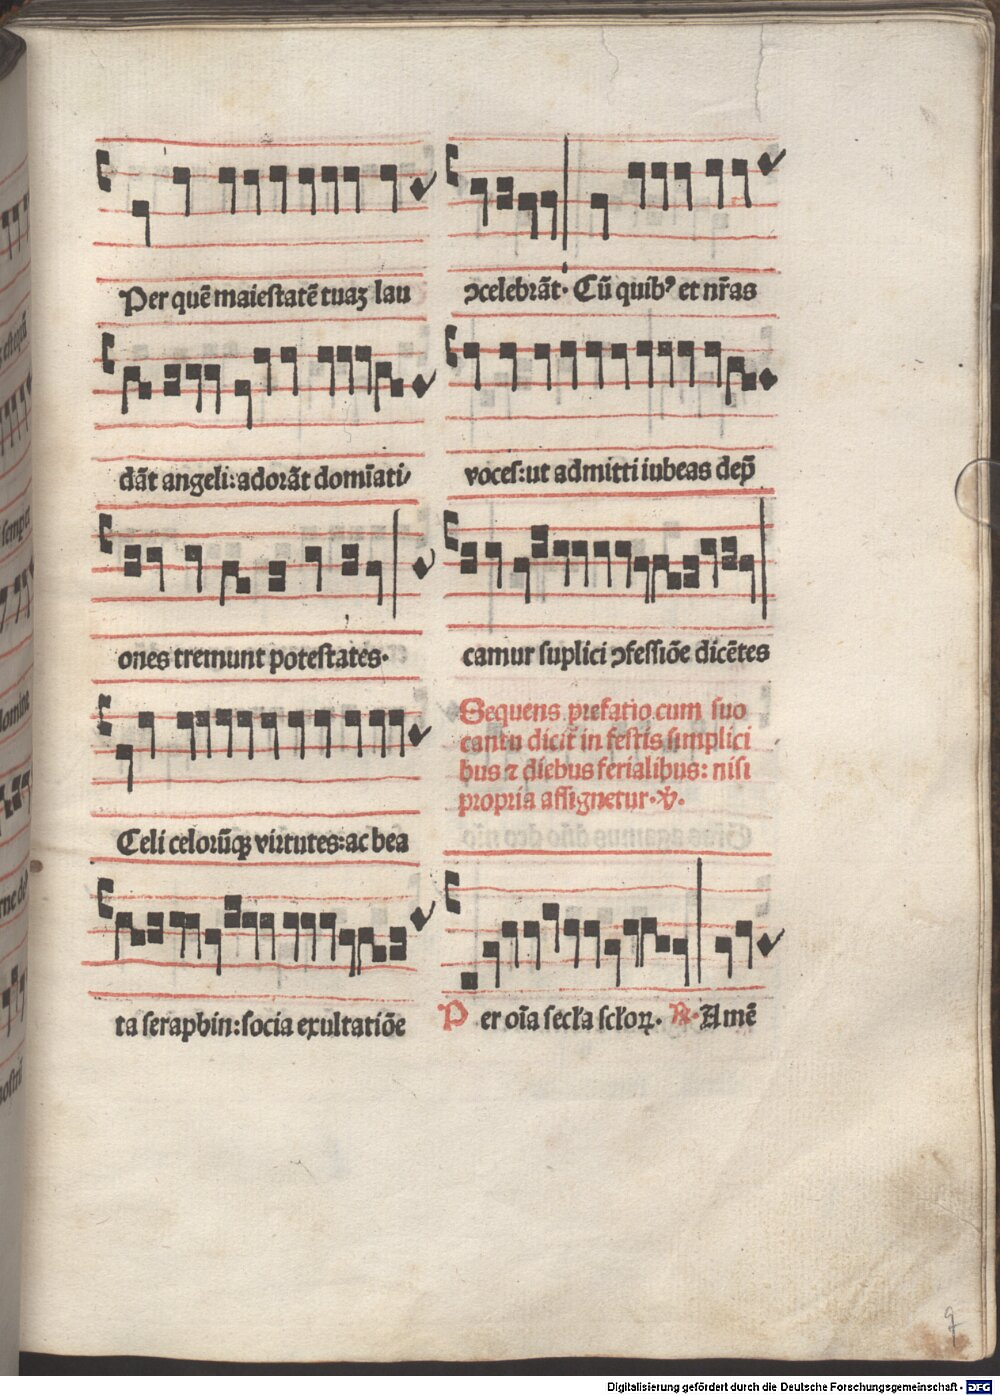 Per quē maieſtatē tuaʒ lau
dāt angeli: adorāt domīati⸗
ones tremunt poteſtates.
Celi celorūqꝫ virtutes: ac bea
ta ſeraphin: ſocia exultatiōe
ꝯcelebrāt. Cū quibꝰ et nr̄as
voceſ: ut admitti iubeas dep̄
camur ſuplici ꝯfeſſiōe dicētes
Sequens prefatio cum ſuo
cantu dicit᷑ in feſtis ſimplici
bus ⁊ diebus ferialibus: niſi
propria aſſignetur. ꝟ.
Per oīa ſecl'a ſcl'oꝝ. ℟. Amē
Digitalisierung gefördert durch die Deutsche Forschungsgemeinschaft - DFG